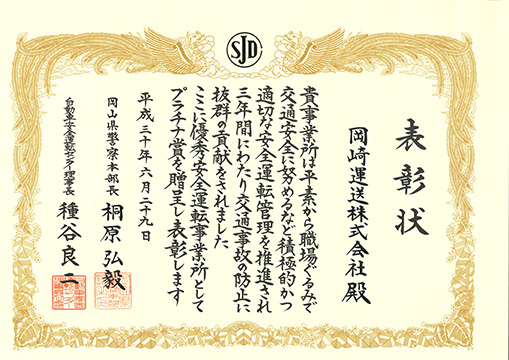 SJD
表彰状
岡崎運送株式会社 殿
貴事業所は平素から職場ぐるみで
交通安全に努めるなど積極的かつ
適切な安全運転管理を推進され
三年間にわたり交通事故の防止に
抜群の貢献をされました
ここに優秀安全運転事業所として
プラチナ賞を贈呈し表彰します
平成三十年六月二十九日
岡山県警察本部長 桐原弘毅
自動車安全運転センター理事長 種谷良二